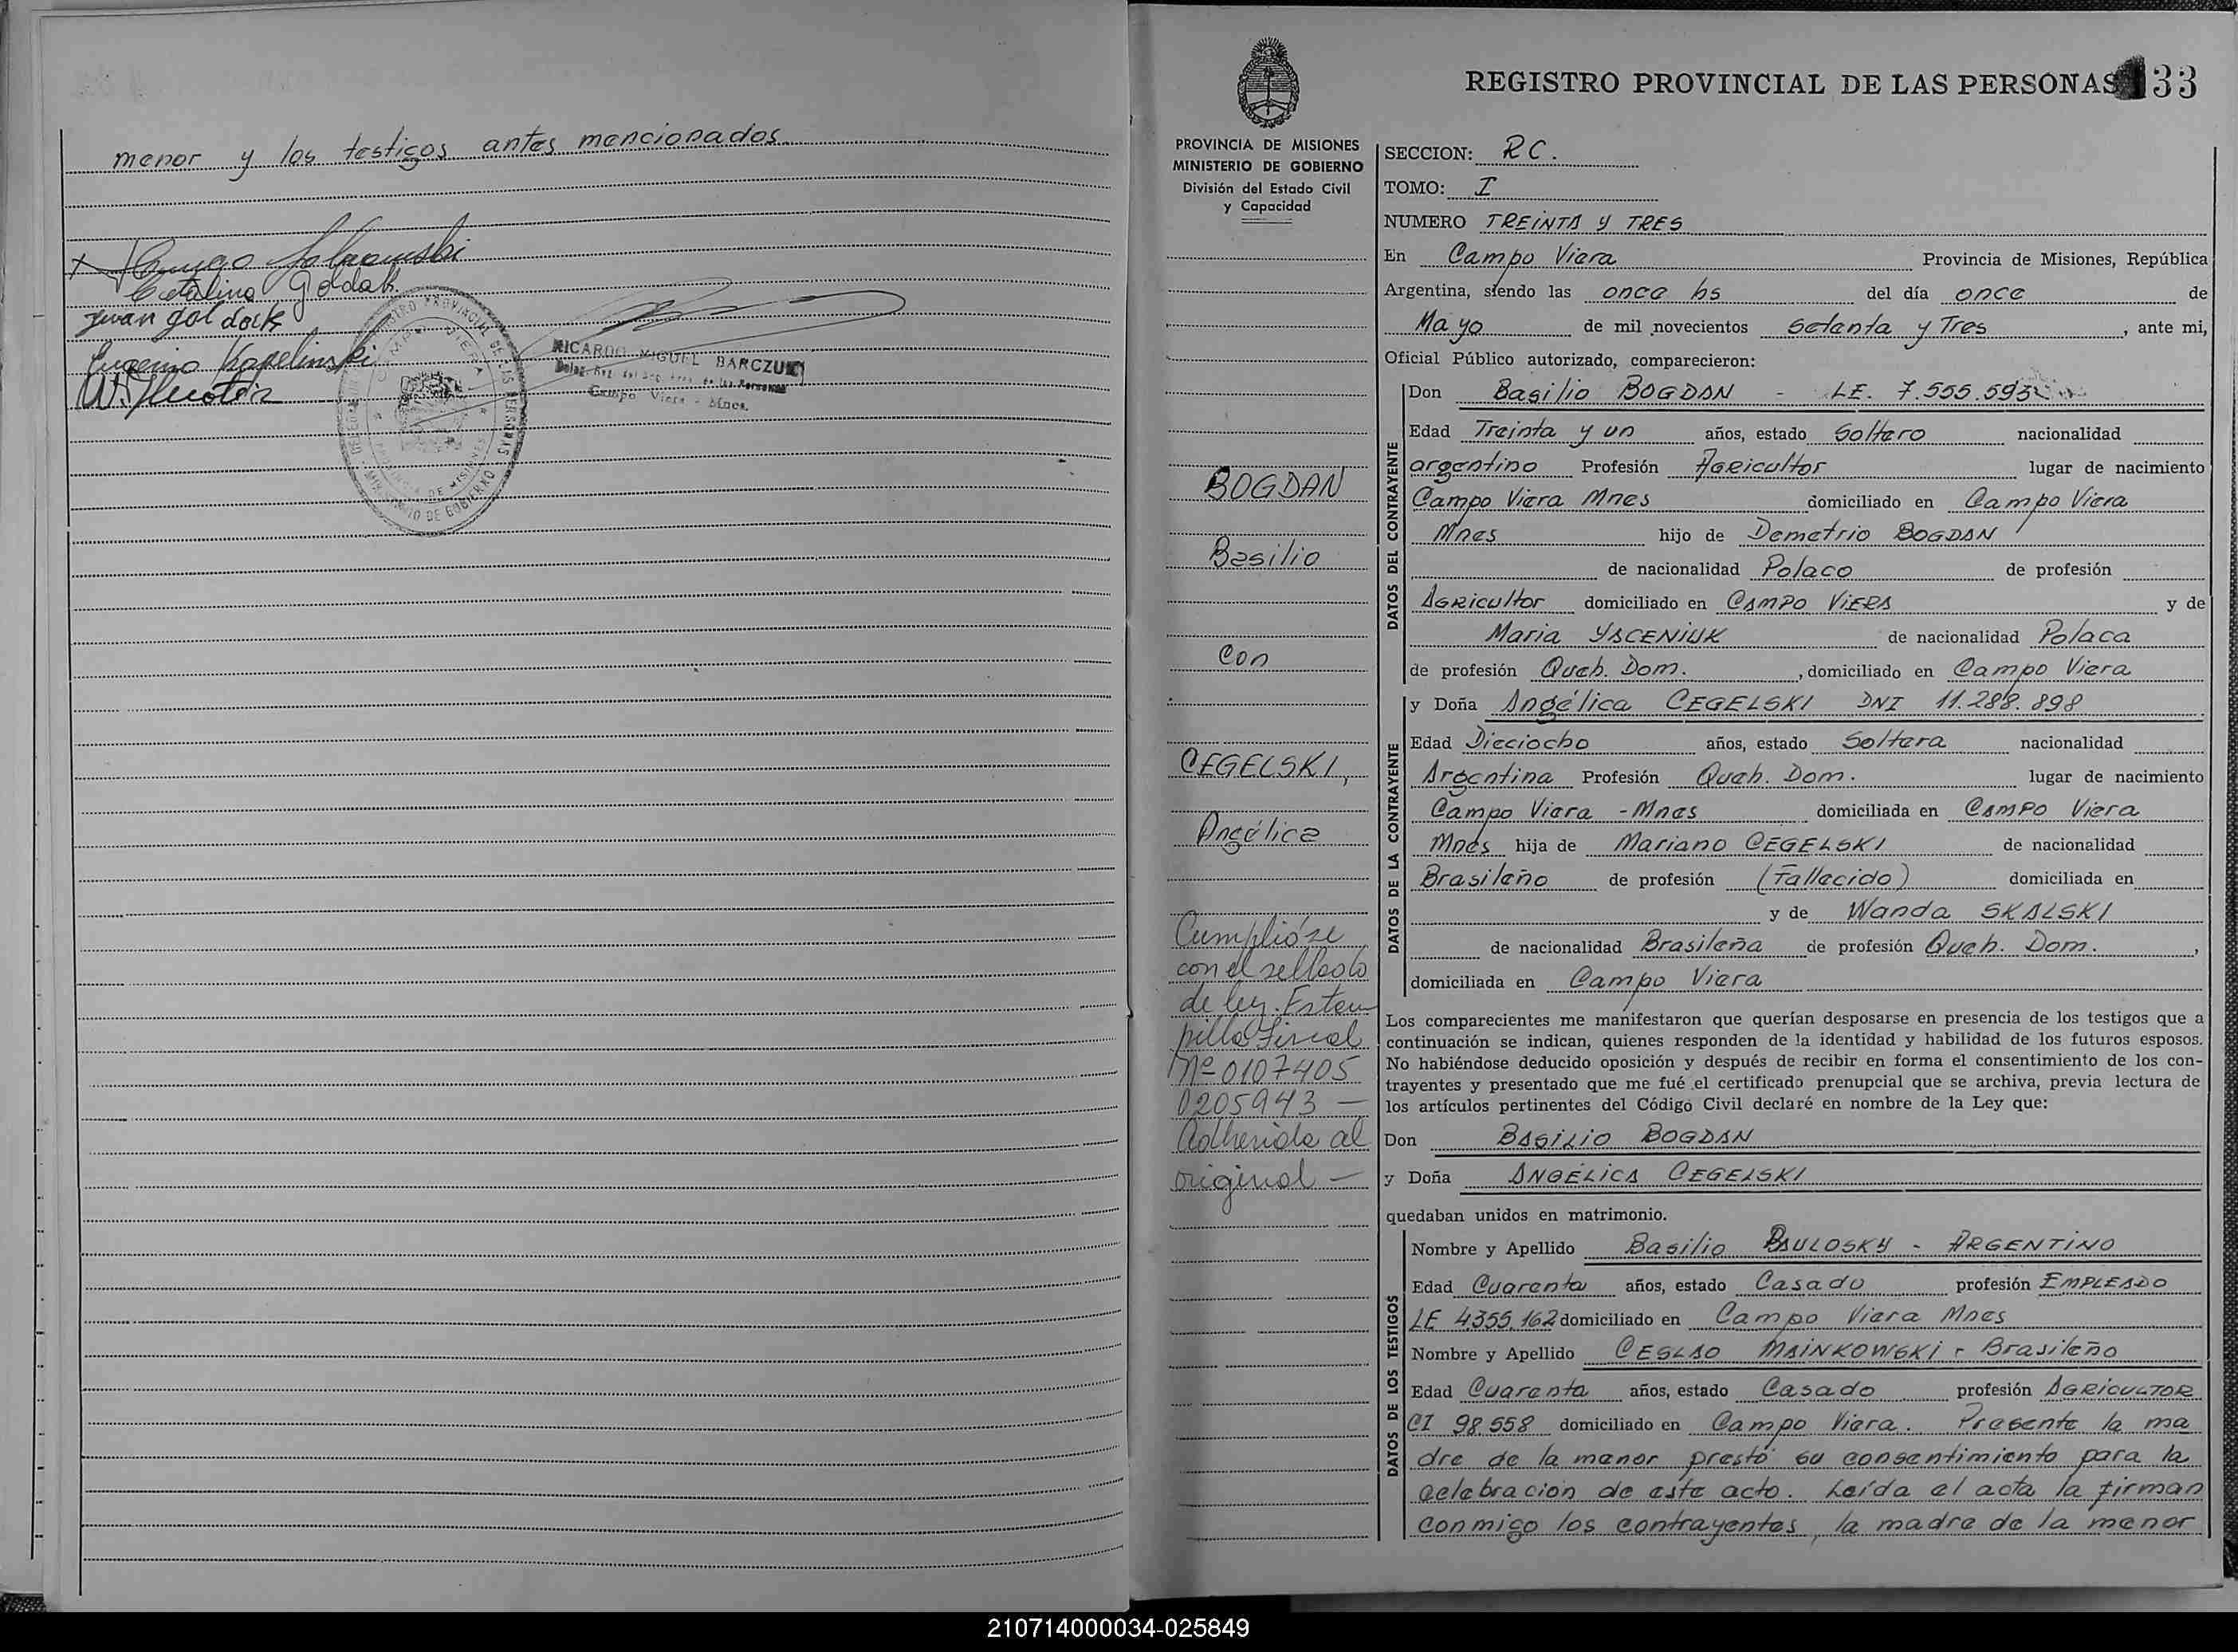 menor y los testigos antes mencionados
Catalina Goldak.
Juan Goldack
Eugenio Kapelinski
RICARDO MIGUEL BARCZUK
Campo Viera - Mnes.
REGISTRO PROVINCIAL DE LAS PERSONAS
MINISTERIO DE GOBIERNO
33
REGISTRO PROVINCIAL DE LAS PERSONAS
PROVINCIA DE MISIONES
MINISTERIO DE GOBIERNO
División del Estado Civil
y Capacidad
BOGDAN
Basilio
Con
CEGELSKI,
Angélica
Cumplióse
con el sellado
de ley. Estam
pilla fiscal
Nº 0107405
0205943 —
Adherida al
original —
SECCION: RC.
TOMO: I
NUMERO TREINTA Y TRES
En Campo Viera Provincia de Misiones, República
Argentina, siendo las once hs del día once de
Mayo de mil novecientos setenta y Tres, ante mi,
Oficial Público autorizado, comparecieron:
DATOS DEL CONTRAYENTE
Don Basilio BOGDAN - LE. 7.555.593
Edad Treinta y un años, estado Soltero nacionalidad
argentino Profesión Agricultor lugar de nacimiento
Campo Viera Mnes domiciliado en Campo Viera
Mnes hijo de Demetrio BOGDAN
de nacionalidad Polaco de profesión
Agricultor domiciliado en CAMPO VIERA y de
Maria YACENIUK de nacionalidad Polaca
de profesión Queh. Dom., domiciliado en Campo Viera
DATOS DE LA CONTRAYENTE
y Doña Angélica CEGELSKI DNI 11.288.898
Edad Dieciocho años, estado Soltera nacionalidad
Argentina Profesión Queh. Dom. lugar de nacimiento
Campo Viera - Mnes domiciliada en CAMPO Viera
Mnes hija de Mariano CEGELSKI de nacionalidad
Brasileño de profesión (Fallecido) domiciliada en
y de Wanda SKALSKI
de nacionalidad Brasileña de profesión Queh. Dom.,
domiciliada en Campo Viera
Los comparecientes me manifestaron que querían desposarse en presencia de los testigos que a
continuación se indican, quienes responden de la identidad y habilidad de los futuros esposos.
No habiéndose deducido oposición y después de recibir en forma el consentimiento de los con-
trayentes y presentado que me fué el certificado prenupcial que se archiva, previa lectura de
los artículos pertinentes del Código Civil declaré en nombre de la Ley que:
Don BASILIO BOGDAN
y Doña ANGÉLICA CEGELSKI
quedaban unidos en matrimonio.
DATOS DE LOS TESTIGOS
Nombre y Apellido Basilio PAULOSKY - ARGENTINO
Edad Cuarenta años, estado Casado profesión EMPLEADO
LE 4355.162 domiciliado en Campo Viera Mnes
Nombre y Apellido CESLAO MAINKOWSKI - Brasileño
Edad Cuarenta años, estado Casado profesión AGRICULTOR
CI 98.558 domiciliado en Campo Viera. Presente la ma
dre de la menor prestó su consentimiento para la
celebración de este acto. Leída el acta la firman
conmigo los contrayentes, la madre de la menor
210714000034-025849